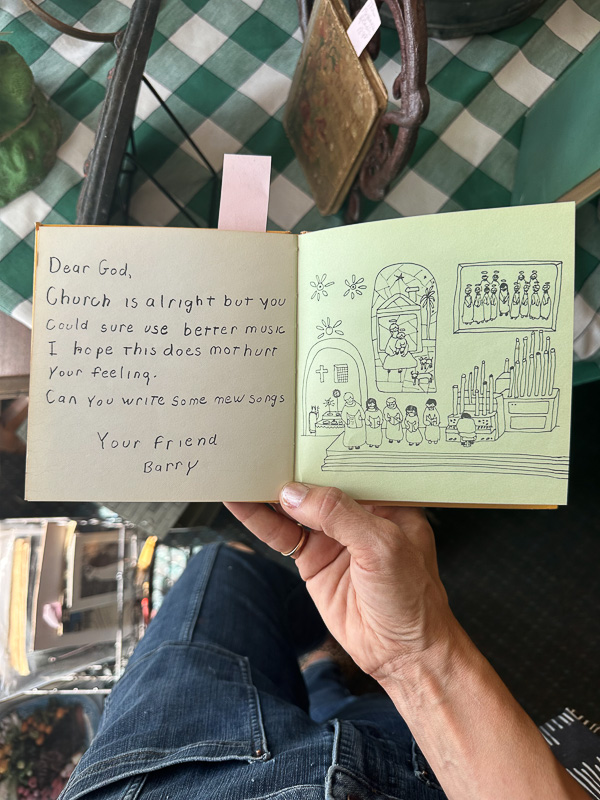 Dear God,
Church is alright but you
could sure use better music
I hope this does not hurt
your feeling.
Can you write some new songs
Your friend
Barry